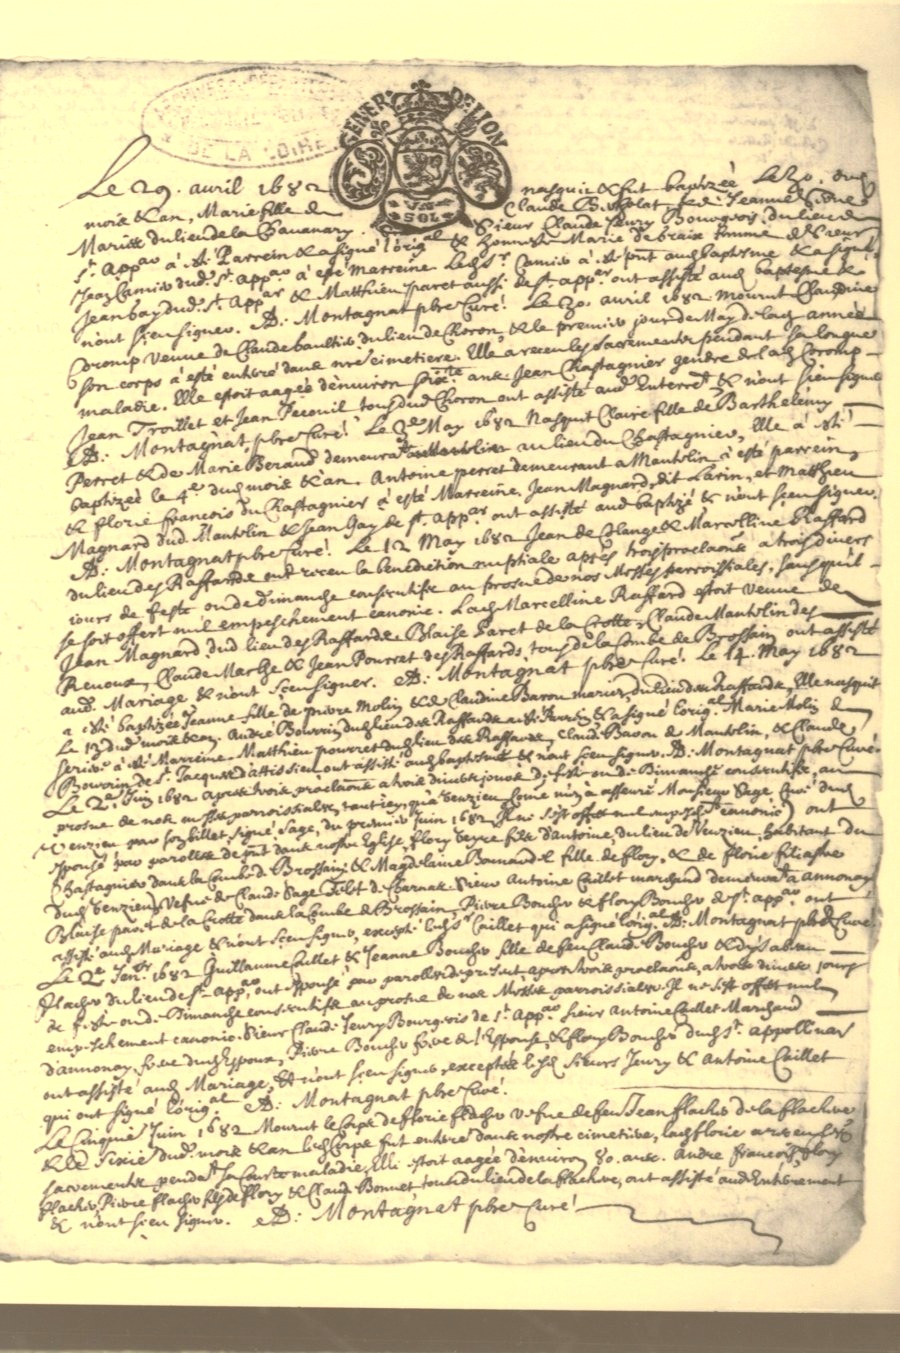 DE LA LOIRE
GENER. DE LION
UN SOL
Le 29. avril 1682 nasquit & fut baptizée Le 30. dud
mois & an, Marie fille de Claude & de Jeanne
Mariée du lieu de la Chavanary. Sieur Claude Jeury Bourgeois du lieu de
St. Appao à sté Parrein & a signé l'orig.al & honneste Marie de braix femme de Sieur
Jean Camier dud. St. appao à esté marreine. Led. Sr. Camier à sté pnt aud baptesme & a signé.
Jean bay dud. St. Appar & Matthieu paret aussi de St. appar. ont assisté aud baptesme &
n'ont sceu signer. AD: Montagnat pbre Curé! Le 30. avril 1682 mourut Claudine
Cromp veuve de Claude baultier du lieu de Choron, & le premier jour de May de lad. année
son corps à esté enterré dans nre cimetiere. Elle a receu les sacrements pendant sa longue
maladie. Elle estoit aagée d'environ ans Jean Chastagnier gendre de lad Cromp
Jean Troillet et Jean tous dud Choron ont assisté aud. Enterret & n'ont sceu signer
AD: Montagnat, pbre Curé! Le 2e May 1682 Nasquit Claire fille de Barthelemy
Perret & de Marie Beraud demeurats au lieu du Chastagnier, Elle à sté
baptizée le 4e dud mois & an. Antoine perret demeurant a Mantelin à esté parrein,
& florie francois du Chastagnier à esté Marreine, Jean Magnard, dit Larin, et Matthieu
Magnard dud. Mantelin & Jean Jay de St. Appar ont assisté aud baptizé & n'ont sceu signer.
AD: Montagnat pbre Curé! Le 12 May 1682 Jean de Colange & Marcelline Raffard
du lieu des Raffards ont receu la benediction nuptiale apres trois proclaons a trois divers
jours de feste ou de dimanche consecutifs au prosne de nos Messes perroissiales, sans qu'il
se soit offert nul empeschement canonic. Lad. Marcelline Raffard estoit veuve de
Jean Magnard dud. lieu des Raffards. Blaise Paret de la Crotte, Claude Mantelin des
Renoux, Claude Marthe & Jean Pourret des Raffards, tous de la Combe de Brossain ont assisté
aud. Mariage & n'ont sceu signer. AD: Montagnat pbre Curé! Le 14. May 1682
a sté baptizée Jeanne fille de pierre Molin & de Claudine Baron mariez, du lieu des Raffards, Elle nasquit
Le 13 dud. mois & an. André Bourrin du lieu des Raffards a sté Parrein & a signé l'orig.al Marie Molin de
à sté Marreine. Matthieu pourret du lieu des Raffards, Claude Baron de Mantelin, & Claude
Bourrin de St. Jacques d'attissieu ont assisté aud baptesme & n'ont sceu signer. AD: Montagnat pbre Curé.
Le 2e Juin 1682 apres trois proclaons a trois divers jours de feste ou de Dimanche consecutifs, au
prosne de nos messes parroissiales, tant icy, qu'a Venzieu come m'en a asseuré Monsieur Sage Curé dud
Venzieu par son billet, signé Sage, du premier Juin 1682 ont
espousé par parolles de pnt dans nostre Eglise, flory veyre fils d'antoine, du lieu de Venzieu, habitant du
Chastagnier dans la Combe de Brossain & Magdelaine Bonnard fille de flory, & de florie filiastre
dud Venzieu, Vefve de Claude Sage de Charnas. Sieur Antoine Caillet marchand demeurat a annonay
Blaise paret de la Crotte dans la Combe de Brossain, Pierre Boucher & flory Boucher de St. appao ont
assisté aud Mariage & n'ont sceu signer, excepté led. Sr Caillet qui a signé l'orig.al AD: Montagnat pbre Curé.
Le 2e 1682 Guillaume Caillet & Jeanne Boucher fille de feu Claude Boucher &
flacher du lieu de St. appao, ont espousé par parolles de present apres trois proclaons, a trois divers jours
de feste ou de Dimanche consecutifs au prosne de nos Messes parroissiales. Il ne s'est offert nul
empeschement canonic. Sieur Claude Jeury Bourgeois de St. Appao Sieur Antoine Caillet Marchand
d'annonay, frere dud Espoux, Pierre Boucher frere de l'Espouse, & flory Boucher dud St. appollinar
ont assisté aud Mariage, Et n'ont sceu signer, exceptés lesd. Sieurs Jeury & Antoine Caillet
qui ont signé l'orig.al AD: Montagnat pbre Curé.
Le Cinquie Juin 1682 Mourut le Corps de florie flacher vefve de feu Jean flacher de la flachere
& Le Sixie dud. mois & an led Corps fut enterré dans nostre cimetiere, lad. florie a receu les
sacrements pendat sa courte maladie, Elle estoit aagée d'environ 80. ans. Andre francois, flory
flacher, Pierre flacher fils de flory & Claude Bonnet tous du lieu de la flachere, ont assisté aud Enterrement
& n'ont sceu signer. AD: Montagnat pbre Curé!